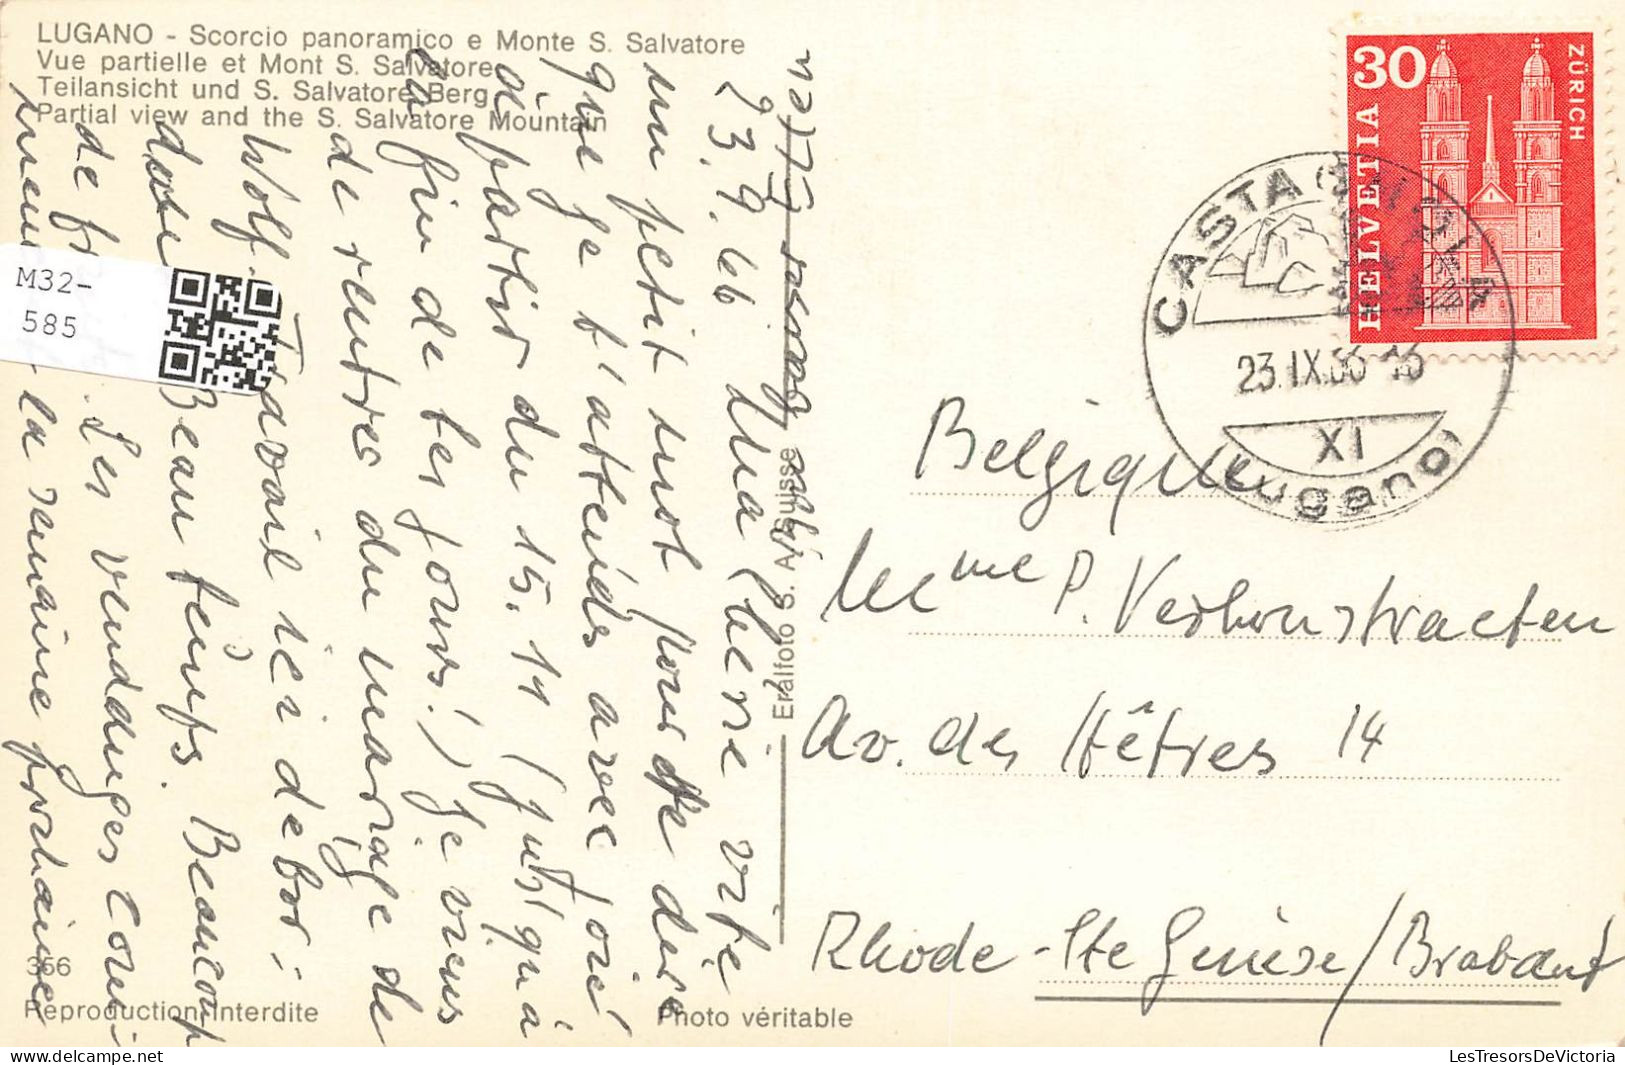 LUGANO - Scorcio panoramico e Monte S. Salvatore
Vue partielle et Mont S. Salvatore
Teilansicht und S. Salvatore Berg
Partial view and the S. Salvatore Mountain
M32-
585
23.9.66 Ma chérie vite
un petit mot pour te dire
que je t'attends avec joie
à partir du 15. 11 (jusqu'à
la fin de tes jours!) Je viens
de rentrer du mariage de
Wolf. Travail ici debor:
dant. Beau temps. Beaucoup
de fr . Les vendanges comi
mencent la semaine prochaine
356
Reproduction interdite
Photo véritable
Eralfoto S. A. Suisse
HELVETIA
30
ZÜRICH
CASTAGNOLA
23.IX.66-16
XI
(Lugano)
Belgique
Mme P. Verhonstraeten
Av. des Hêtres 14
Rhode-Ste Genèse/Brabant
LesTresorsDeVictoria